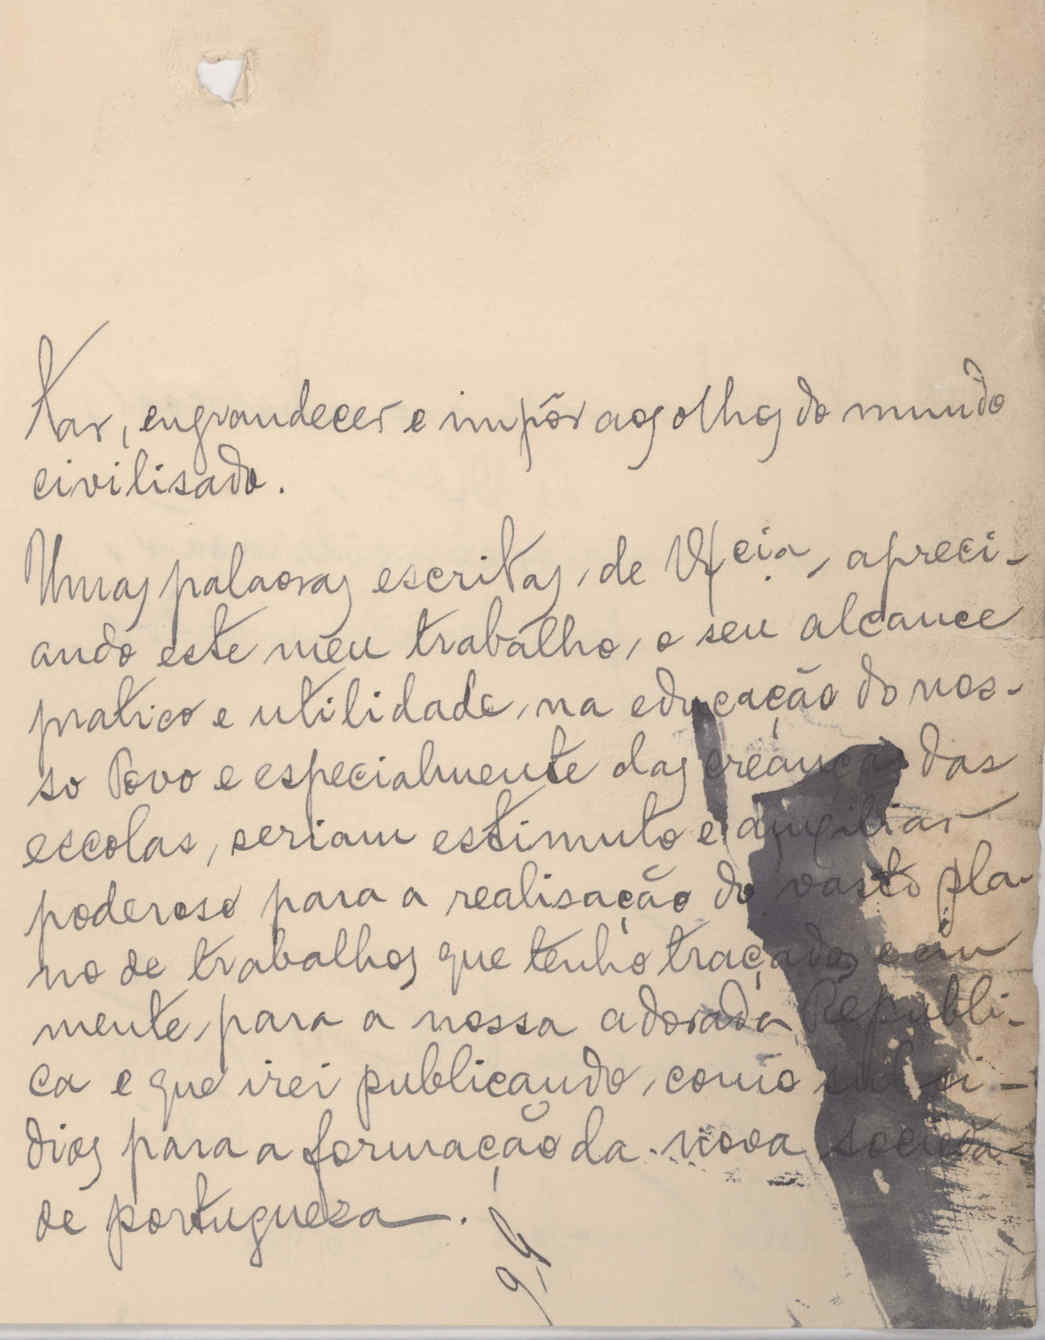 tar, engrandecer e impôr aos olhos do mundo
civilisado.
Umas palavras escritas, de V.ª Ex.cia, apreci-
ando este meu trabalho, o seu alcance
pratico e utilidade, na educação do nos-
so Povo e especialmente das creanças das
escolas, seriam estimulo e auxiliar
poderoso para a realisação do vasto pla-
no de trabalhos que tenho traçados em
mente, para a nossa adorada Republi-
ca e que irei publicando, como subsi-
dios para a formação da nova socieda-
de portugueza.